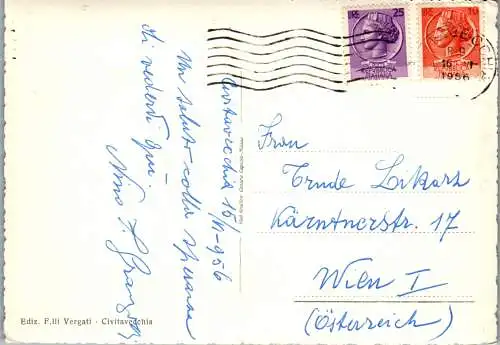 Civitavecchia 15/VI-956
Un saluto colla speranza
di vederti qui.
Nino
Frau
Trude
Kärntnerstr. 17
Wien I
(Österreich)
Ediz. F.lli Vergati - Civitavecchia
LIRE 25
10
16 VI
1956